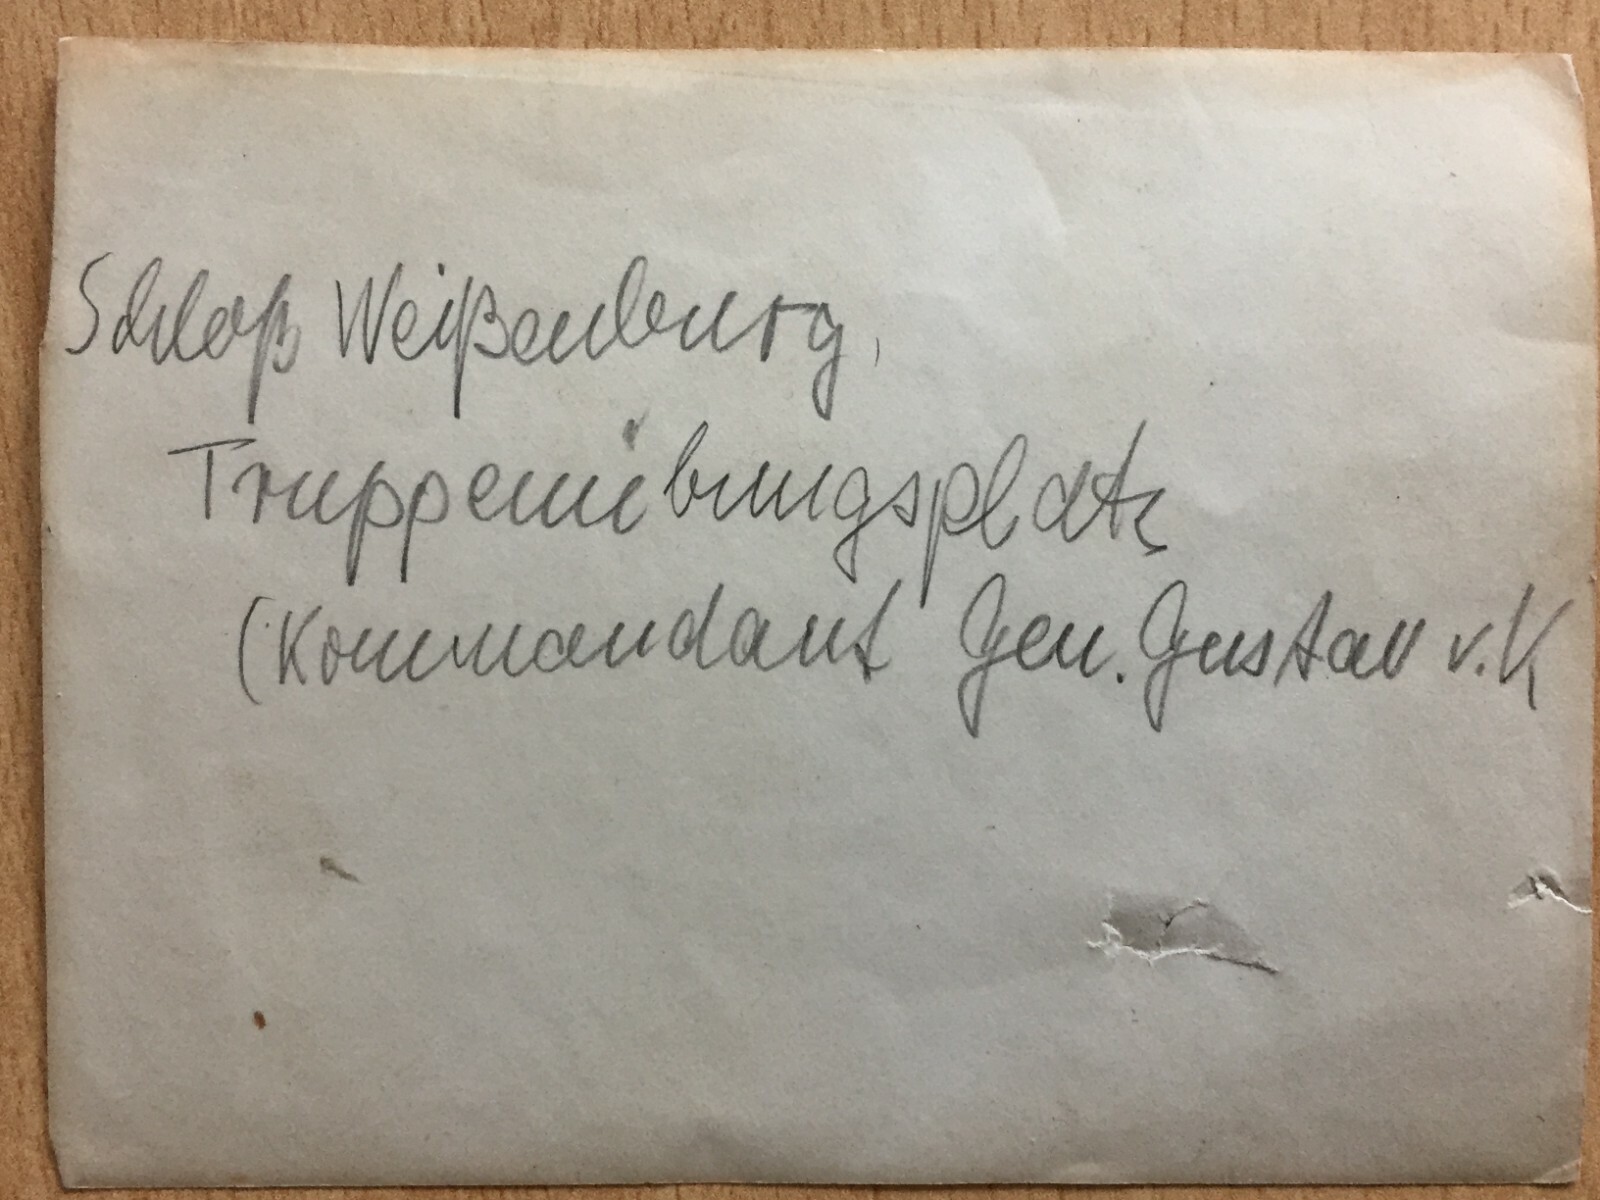 Schloß Weißenburg,
Truppenübungsplatz
(Kommandant Gen. Gustav v. K